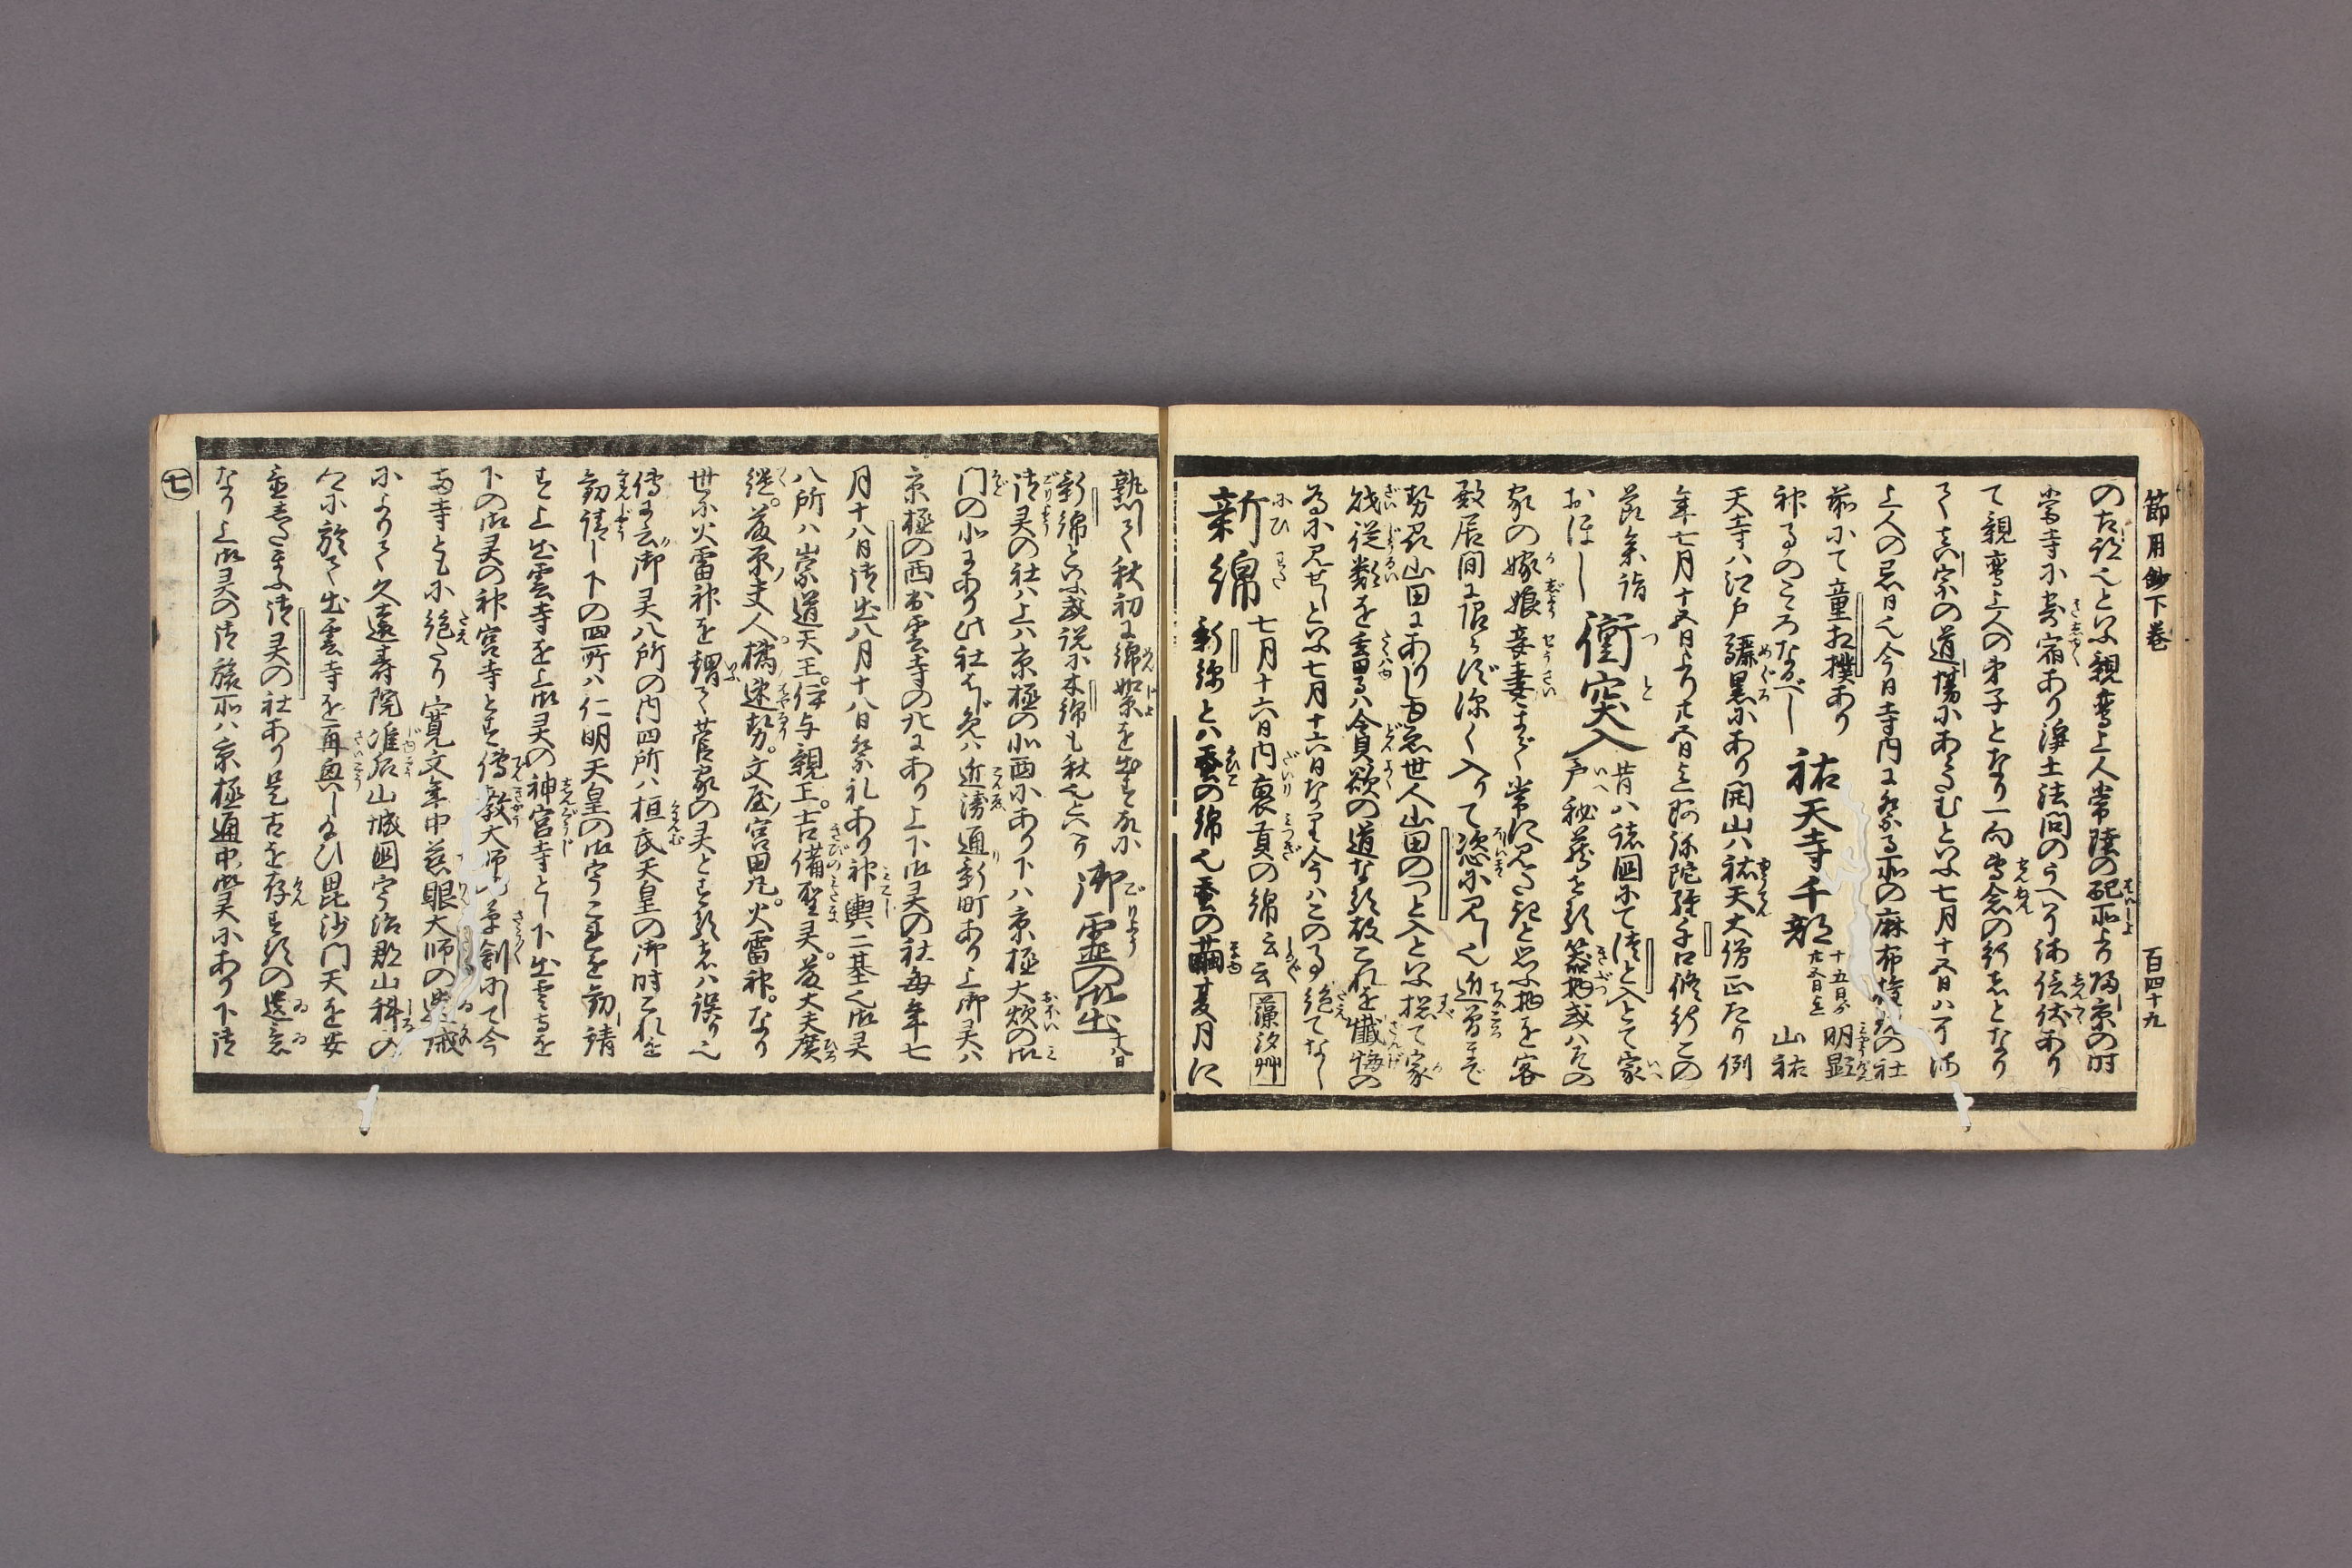 節用鈔下巻 百四十九
の古跡也といふ親鸞上人常陸の配所より帰京の時
当寺に寄宿あり浄土法問のうへ
て親鸞上人の弟子となり一向専念の行者となり
て真宗の道場にあらたむといふ七月十五日ハ了海
上人の忌日也今日寺内に祭る所の麻布権現の社
前にて童相撲あり 明顕
神事のこゝろなるべし 祐天寺千部 十五日より廿五日迄 山祐
天寺ハ江戸驪黒にあり開山ハ祐天大僧正たり例
年七月十五日より廿五日迄阿弥陀経千口修行この
節参詣
おほし 衝突入 昔ハ諸国にて津と入とて家
戸秘蔵せる器物或ハその
家の嫁娘妾妻まで常に見たきと思ふ物を客
殿居間に限らず深く入りて恣に見し也近曽まで
勢州山田にありし由世人山田のつと入といふ惣て家
財従類を
為に見せしといふ七月十六日なり今ハこの事絶てなし
新綿 七月十六日内裏貢の綿云云 藻汐艸
新綿とハ蚕の綿也蚕の繭夏月に
熟して秋初に綿如糸を出す故に
新綿といふ或説に木綿も秋也と云り 御霊の御出 十八日
御灵の社ハ上ハ京極の北西にあり下ハ京極大炊の御
門の北にあり此社もと
京極の西出雲寺の北にあり上下御灵の社毎年七
月十八日御出八月十八日祭礼あり神輿二基也御灵
八所ハ崇道天王。伊与親王。吉備聖灵。藤大夫廣
継。藤原夫人。橘逸勢。文屋宮田丸。火雷神。なり
世に火雷神を謂て菅家の灵とする者ハ誤り也
傳に云御灵八所の内四所ハ桓武天皇の御時これを
勧請し下の四所ハ仁明天皇の御宇これを勧請
す上出雲寺を上御灵の神宮寺とし下出雲寺を
下の御灵の神宮寺とす傳教大師の草創にして今
両寺ともに絶たり寛文年中慈眼大師の遺戒
によりて久遠寿院准后山城国宇治郡山科の
郷に於て出雲寺を再興し給ひ毘沙門天を安
置すまた御灵の社あり是古を存する の遺意
なり上御灵の御旅所ハ京極通中御灵にあり下御
七